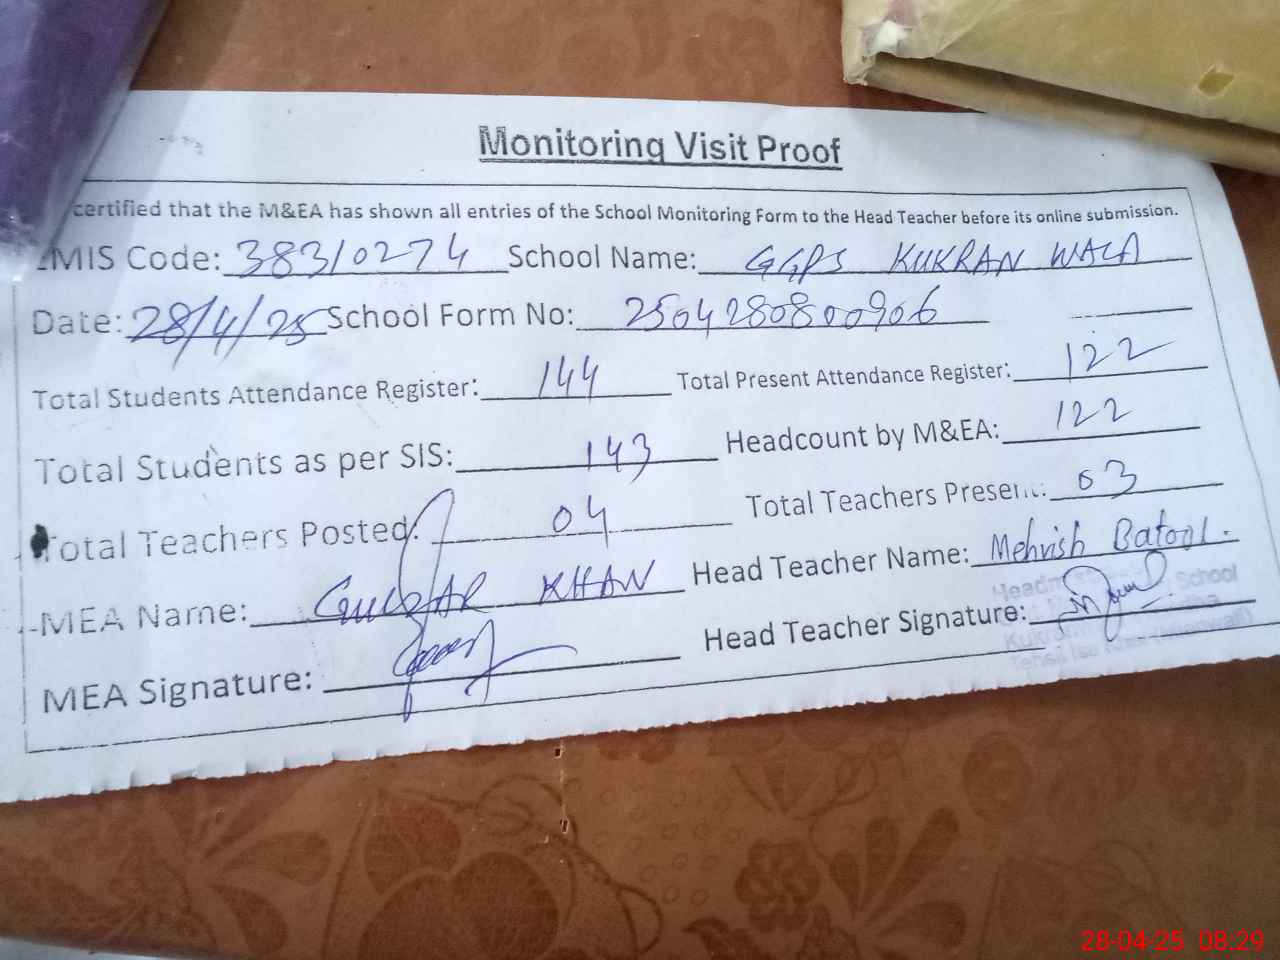 Monitoring Visit Proof
certified that the M&EA has shown all entries of the School Monitoring Form to the Head Teacher before its online submission.
EMIS Code: 38310274 School Name: GGPS KUKRAN WALA
Date: 28/4/25 School Form No: 2504280800906
Total Students Attendance Register: 144 Total Present Attendance Register: 122
Total Students as per SIS: 143 Headcount by M&EA: 122
Total Teachers Posted: 04 Total Teachers Present: 03
MEA Name: GULZAR KHAN Head Teacher Name: Mehvish Batool.
MEA Signature: Head Teacher Signature:
School
Tehsil Isa Khel (Mianwali)
28-04-25 08:29